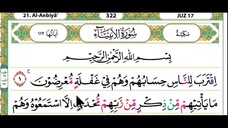 21. Al-Anbiyâ' 322 JUZ 17
سُورَةُ الْأَنْبِيَاءِ
بِسْمِ اللَّهِ الرَّحْمَٰنِ الرَّحِيمِ
اِقْتَرَبَ لِلنَّاسِ حِسَابُهُمْ وَهُمْ فِي غَفْلَةٍ مُعْرِضُونَ ١
مَا يَأْتِيهِمْ مِنْ ذِكْرٍ مِنْ رَبِّهِمْ مُحْدَثٍ إِلَّا اسْتَمَعُوهُ وَهُمْ